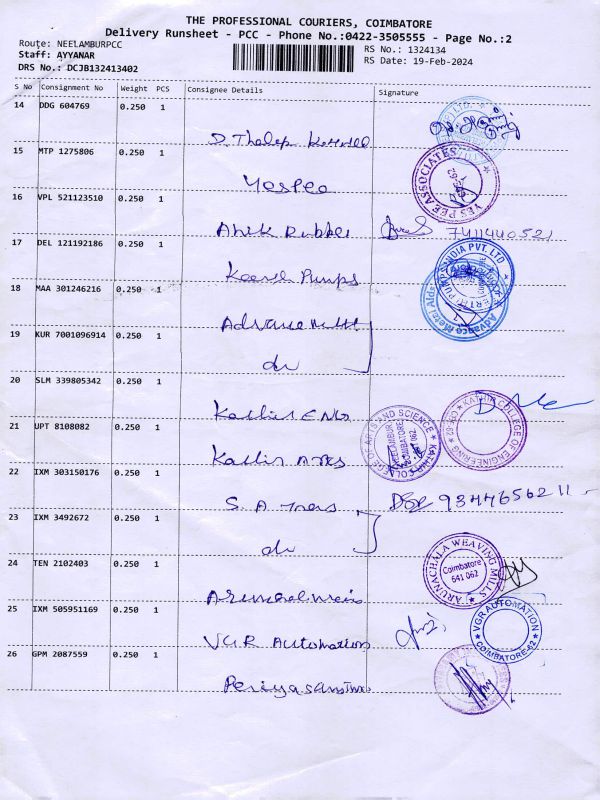 THE PROFESSIONAL COURIERS, COIMBATORE
Delivery Runsheet - PCC - Phone No.:0422-3505555 - Page No.:2
Route: NEELAMBURPCC
RS No.: 1324134
Staff: AYYANAR
RS Date: 19-Feb-2024
DRS No.: DCJB132413402
S No Consignment No Weight PCS Consignee Details Signature
14 DDG 604769 0.250 1
D. Thalep
15 MTP 1275806 0.250 1
Yespee
YES PEE ASSOCIATES
16 VPL 521123510 0.250 1
Rubber 7411440521
17 DEL 121192186 0.250 1
Pumps
PUMPS INDIA PVT. LTD.
18 MAA 301246216 0.250 1
Advance
Advance Metal Aids
19 KUR 7001096914 0.250 1
do
20 SLM 339805342 0.250 1
Kathir ENG
KATHIR COLLEGE OF ENGINEERING
21 UPT 8108082 0.250 1
Kathir Arts
KATHIR COLLEGE OF ARTS AND SCIENCE
NEELAMBUR
COIMBATORE
641 062
22 IXM 303150176 0.250 1
S. A 9344656211
23 IXM 3492672 0.250 1
do
24 TEN 2102403 0.250 1
ARUNACHALA WEAVING MILLS
Coimbatore
641 062
25 IXM 505951169 0.250 1
VGR Automation
VGR AUTOMATION
COIMBATORE-62
26 GPM 2087559 0.250 1